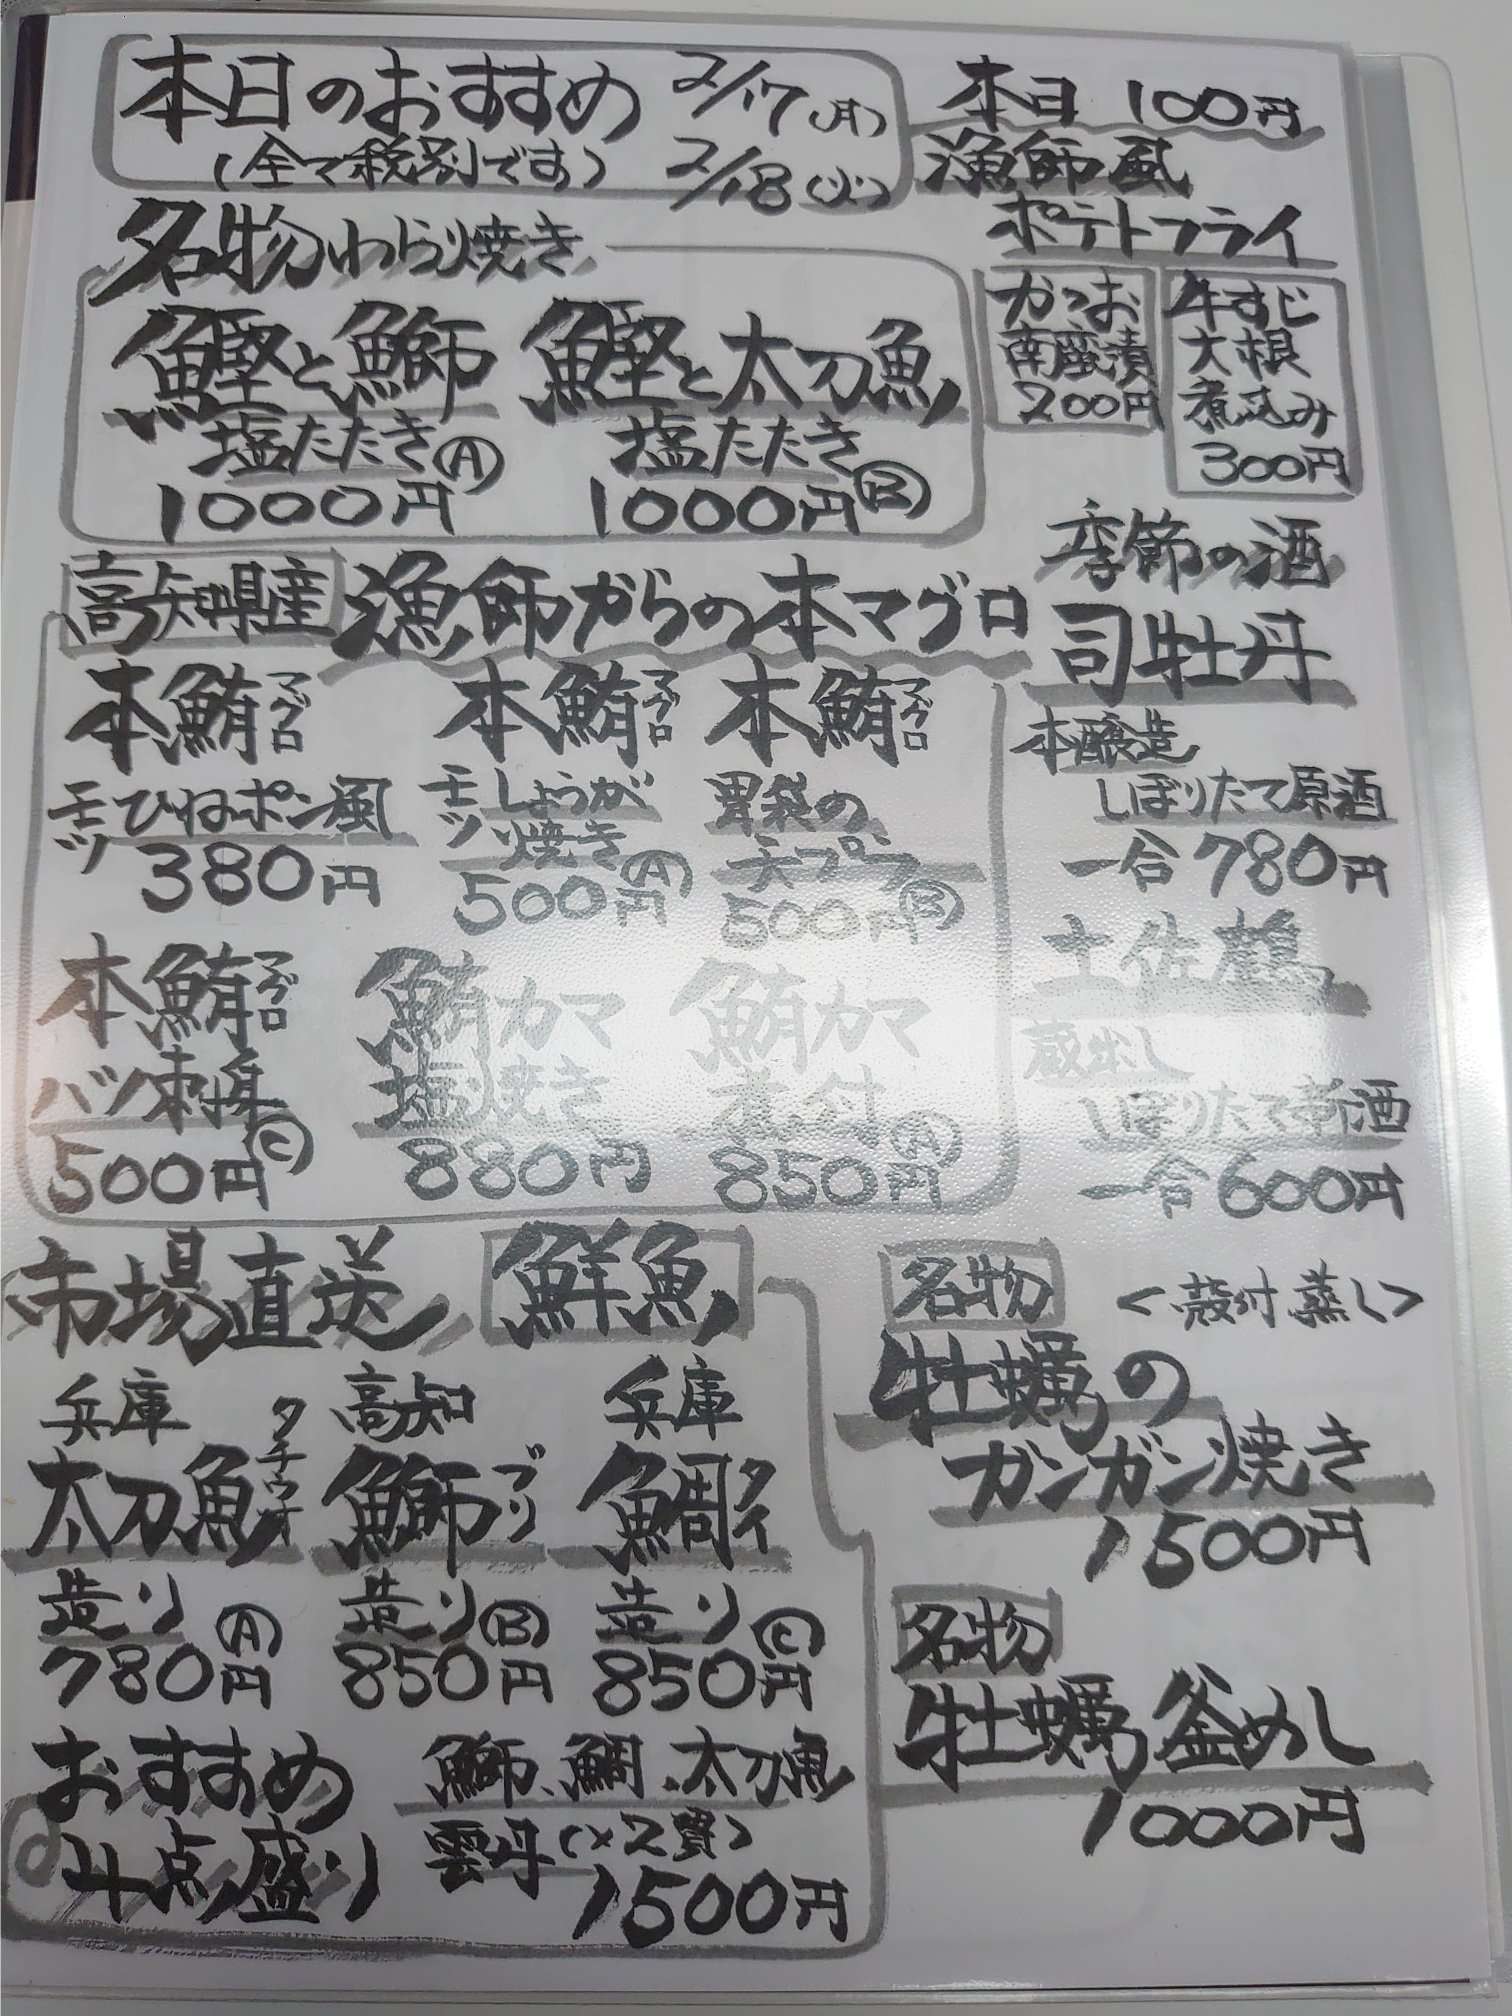 本日のおすすめ 2/17(月)
(全て税別です) 2/18(火)
本日 100円
漁師風
ポテトフライ
かつお
南蛮漬
200円
牛すじ
大根
煮込み
300円
名物わら焼き
鰹と鰤
塩たたきⒶ
1000円
鰹と太刀魚
塩たたき
1000円Ⓑ
高知県産 漁師からの本マグロ
本鮪マグロ
モツひねポン風
380円
本鮪マグロ
モツしょうが
焼き
500円Ⓐ
本鮪マグロ
胃袋の
天プラ
500円Ⓑ
本鮪マグロ
ハツ刺身
500円Ⓒ
鮪カマ
塩焼き
880円
鮪カマ
煮付
850円Ⓐ
季節の酒
司牡丹
本醸造
しぼりたて原酒
一合780円
土佐鶴
蔵出し
しぼりたて新酒
一合600円
市場直送 鮮魚
兵庫
太刀魚タチウオ
造りⒶ
780円
高知
鰤ブリ
造りⒷ
850円
兵庫
鯛タイ
造りⒸ
850円
おすすめ
4点盛り
鰤、鯛、太刀魚
雲丹(×2貫)
1500円
名物 <殻付蒸し>
牡蠣の
ガンガン焼き
1500円
名物
牡蠣釜めし
1000円